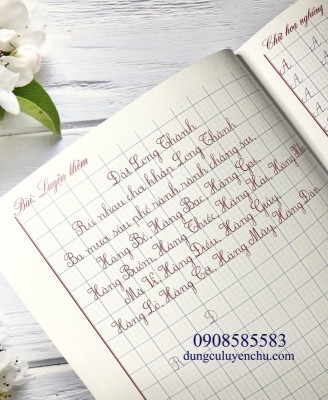 Chữ hoa nghiêng
Bài: Luyện thêm
Đất Long Thành
Rủ nhau chơi khắp Long Thành
Ba mươi sáu phố rành rành chẳng sai.
Hàng Bồ, Hàng Bạc, Hàng Gai,
Hàng Buồm, Hàng Thiếc, Hàng Hài, Hàng
Mã Vĩ, Hàng Điếu, Hàng Giày
Hàng Lờ, Hàng Cót, Hàng Mây, Hàng Đàn
D
R
A
A
A
A
0908585583
dungculuyenchu.com